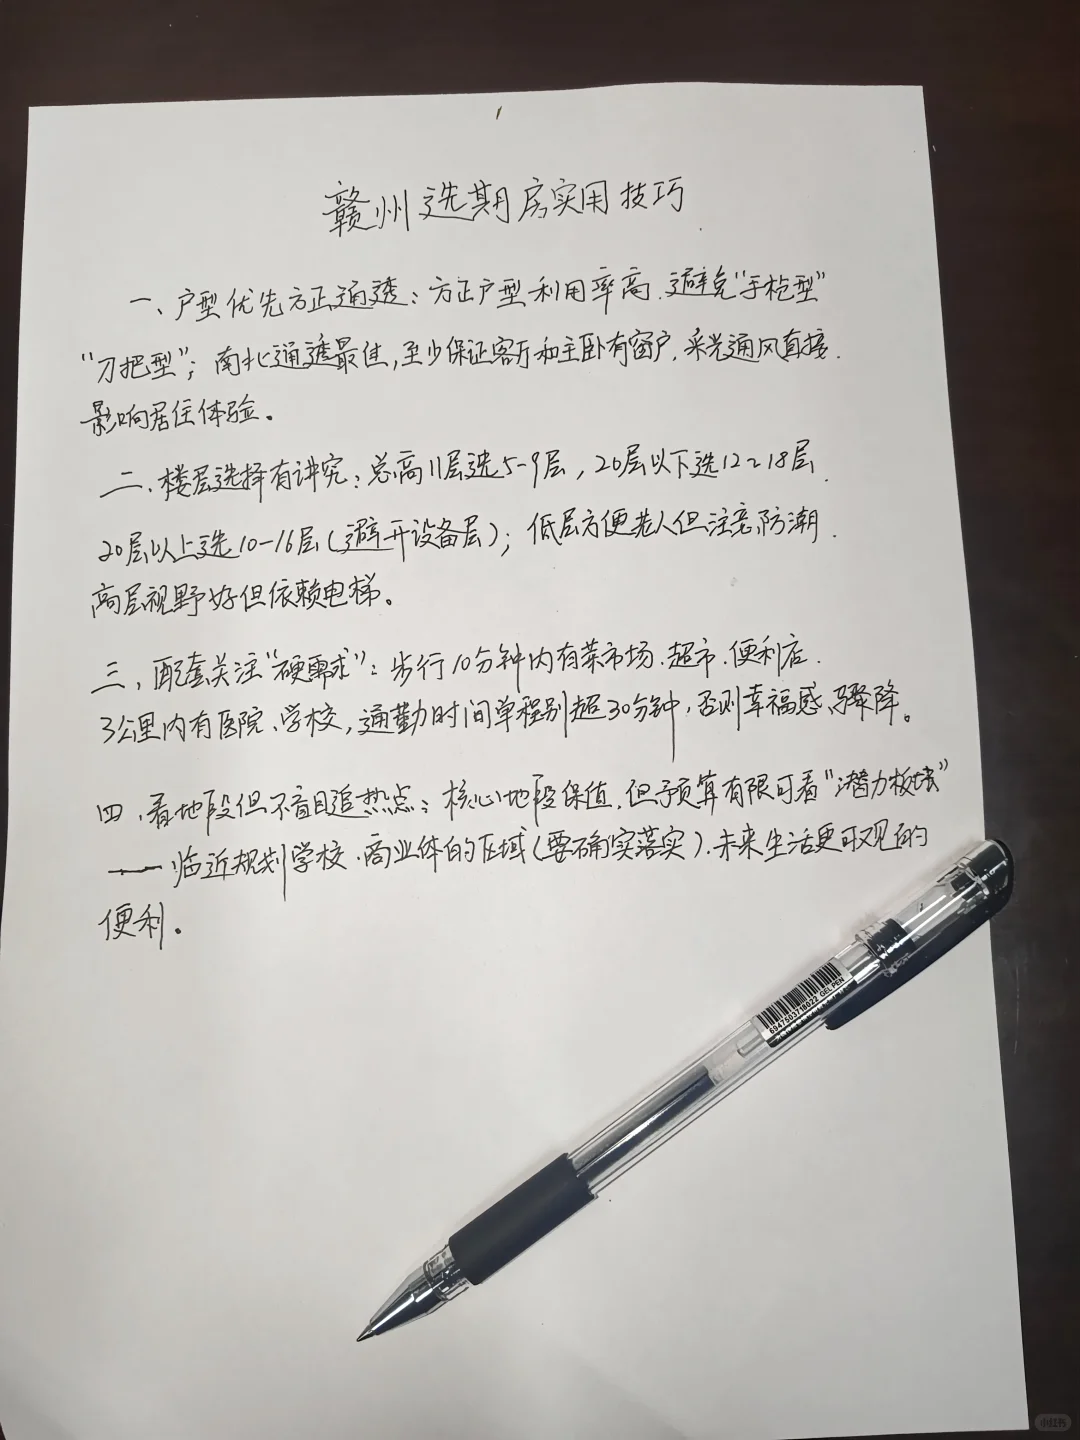 赣州选期房实用技巧
一、户型优先方正通透：方正户型利用率高.避免"手枪型"
"刀把型"；南北通透最佳,至少保证客厅和主卧有窗户,采光通风直接.
影响居住体验。
二、楼层选择有讲究：总高11层选5-9层，20层以下选12~18层.
20层以上选10-16层(避开设备层)；低层方便老人但注意防潮.
高层视野好但依赖电梯。
三、配套关注"硬需求"：步行10分钟内有菜市场.超市.便利店.
3公里内有医院、学校，通勤时间单程别超30分钟，否则幸福感骤降。
四、看地段但不盲目追热点：核心地段保值.但预算有限可看"潜力板块"
——临近规划学校.商业体的区域(要确实落实).未来生活更可见的
便利。
6947503719022 GEL PEN
小红书